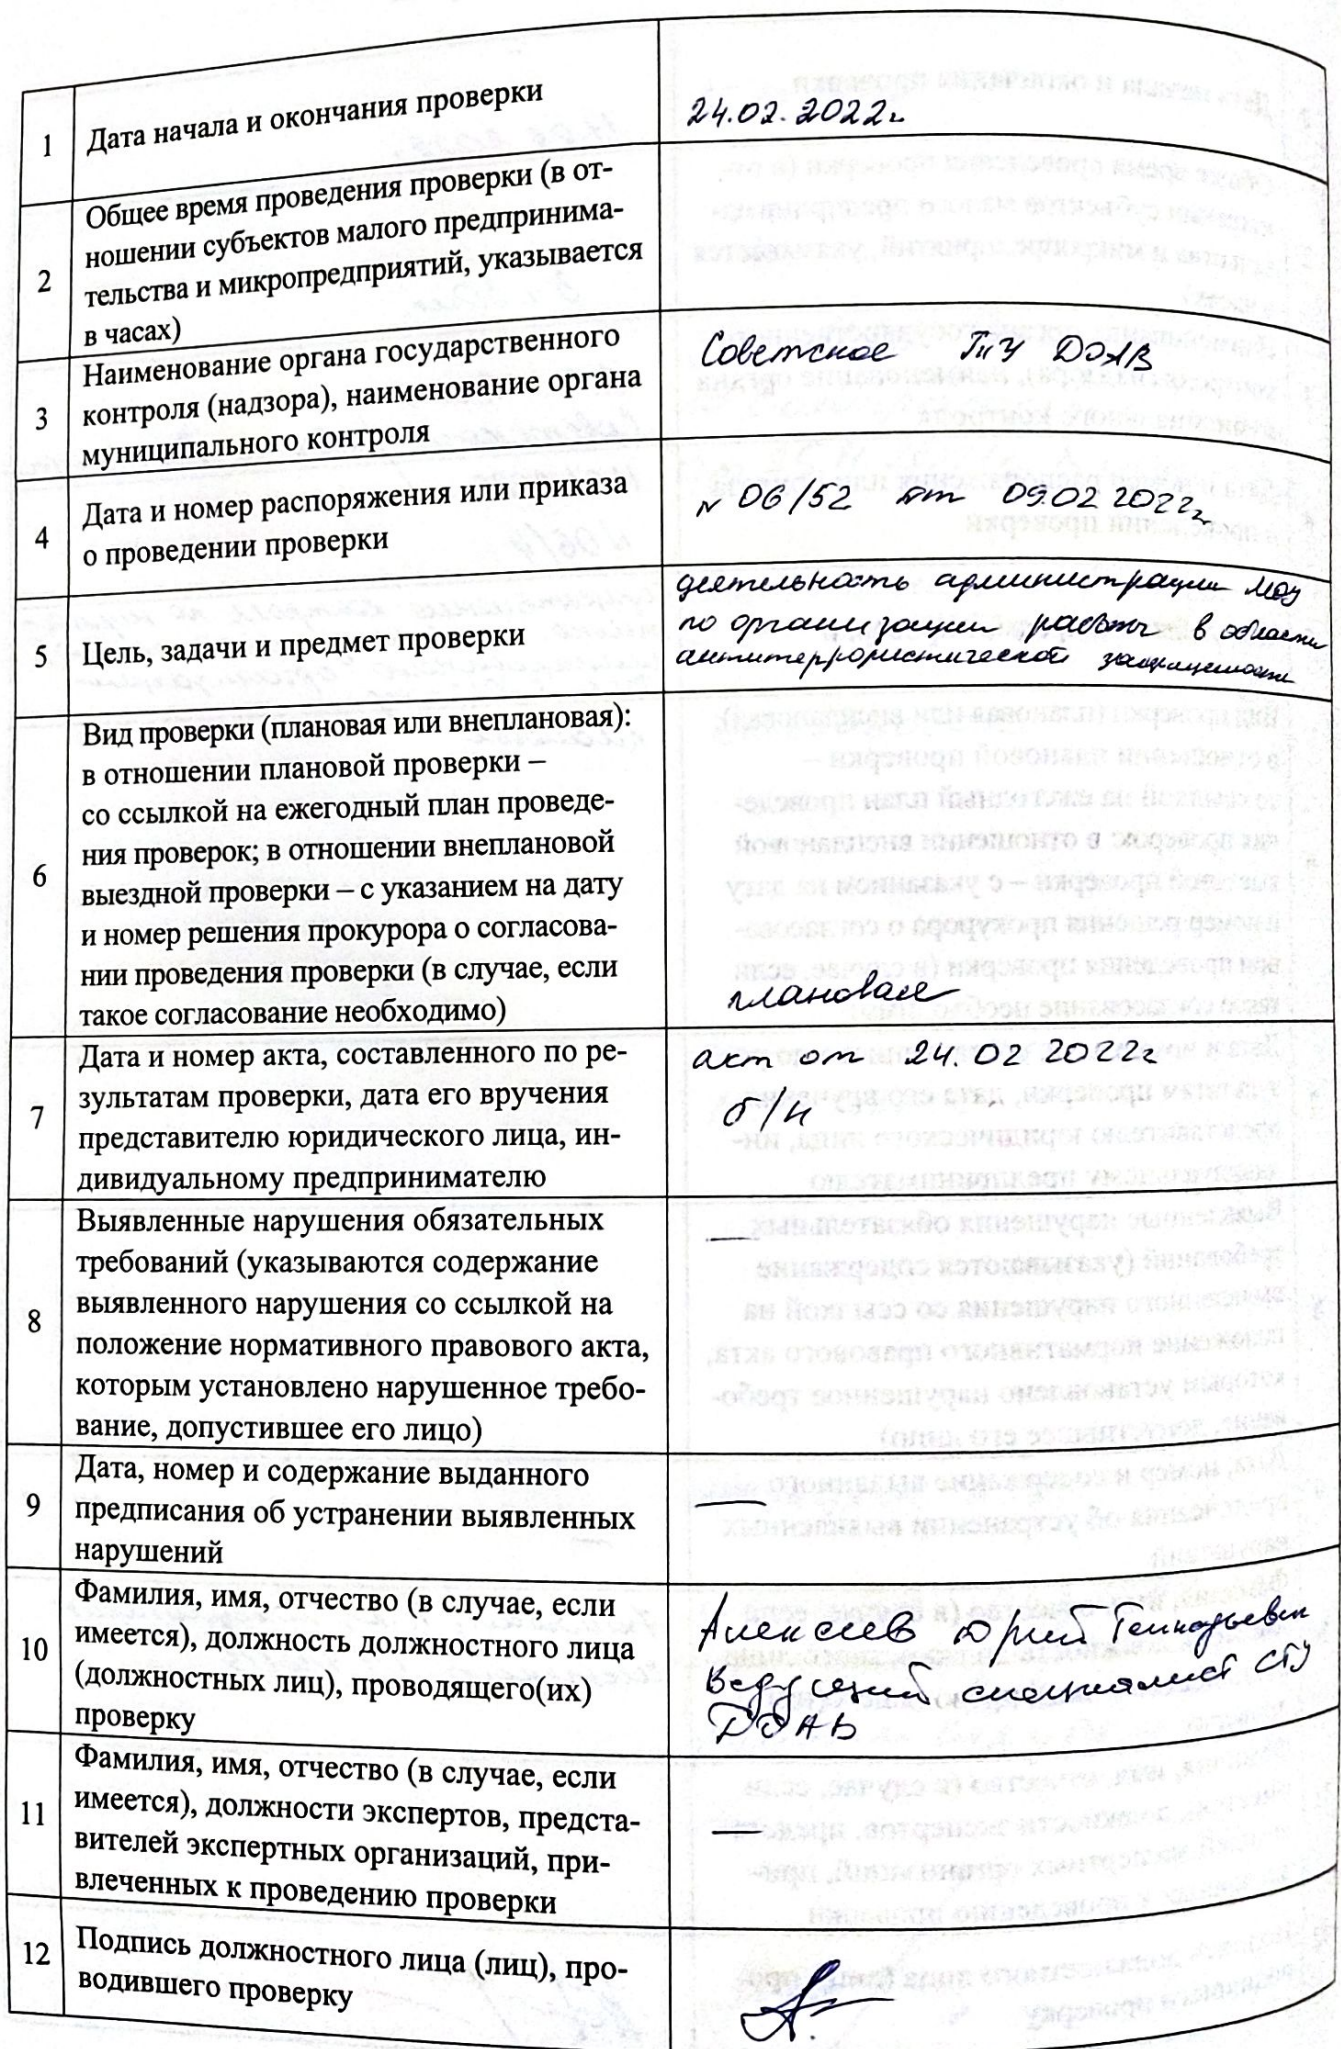 1
Дата начала и окончания проверки
24.02.2022г.
2
Общее время проведения проверки (в от-
ношении субъектов малого предпринима-
тельства и микропредприятий, указывается
в часах)
3
Наименование органа государственного
контроля (надзора), наименование органа
муниципального контроля
Советское ТУ ДОАВ
4
Дата и номер распоряжения или приказа
о проведении проверки
№ 06/52 от 09.02 2022г
5
Цель, задачи и предмет проверки
деятельность администрации МОУ
по организации работы в области
антитеррористической защищенности
6
Вид проверки (плановая или внеплановая):
в отношении плановой проверки –
со ссылкой на ежегодный план проведе-
ния проверок; в отношении внеплановой
выездной проверки – с указанием на дату
и номер решения прокурора о согласова-
нии проведения проверки (в случае, если
такое согласование необходимо)
плановая
7
Дата и номер акта, составленного по ре-
зультатам проверки, дата его вручения
представителю юридического лица, ин-
дивидуальному предпринимателю
акт от 24.02 2022г
б/н
8
Выявленные нарушения обязательных
требований (указываются содержание
выявленного нарушения со ссылкой на
положение нормативного правового акта,
которым установлено нарушенное требо-
вание, допустившее его лицо)
—
9
Дата, номер и содержание выданного
предписания об устранении выявленных
нарушений
—
10
Фамилия, имя, отчество (в случае, если
имеется), должность должностного лица
(должностных лиц), проводящего(их)
проверку
Алексеев Юрий Геннадьевич
Ведущий специалист СТУ
ДОАВ
11
Фамилия, имя, отчество (в случае, если
имеется), должности экспертов, предста-
вителей экспертных организаций, при-
влеченных к проведению проверки
—
12
Подпись должностного лица (лиц), про-
водившего проверку